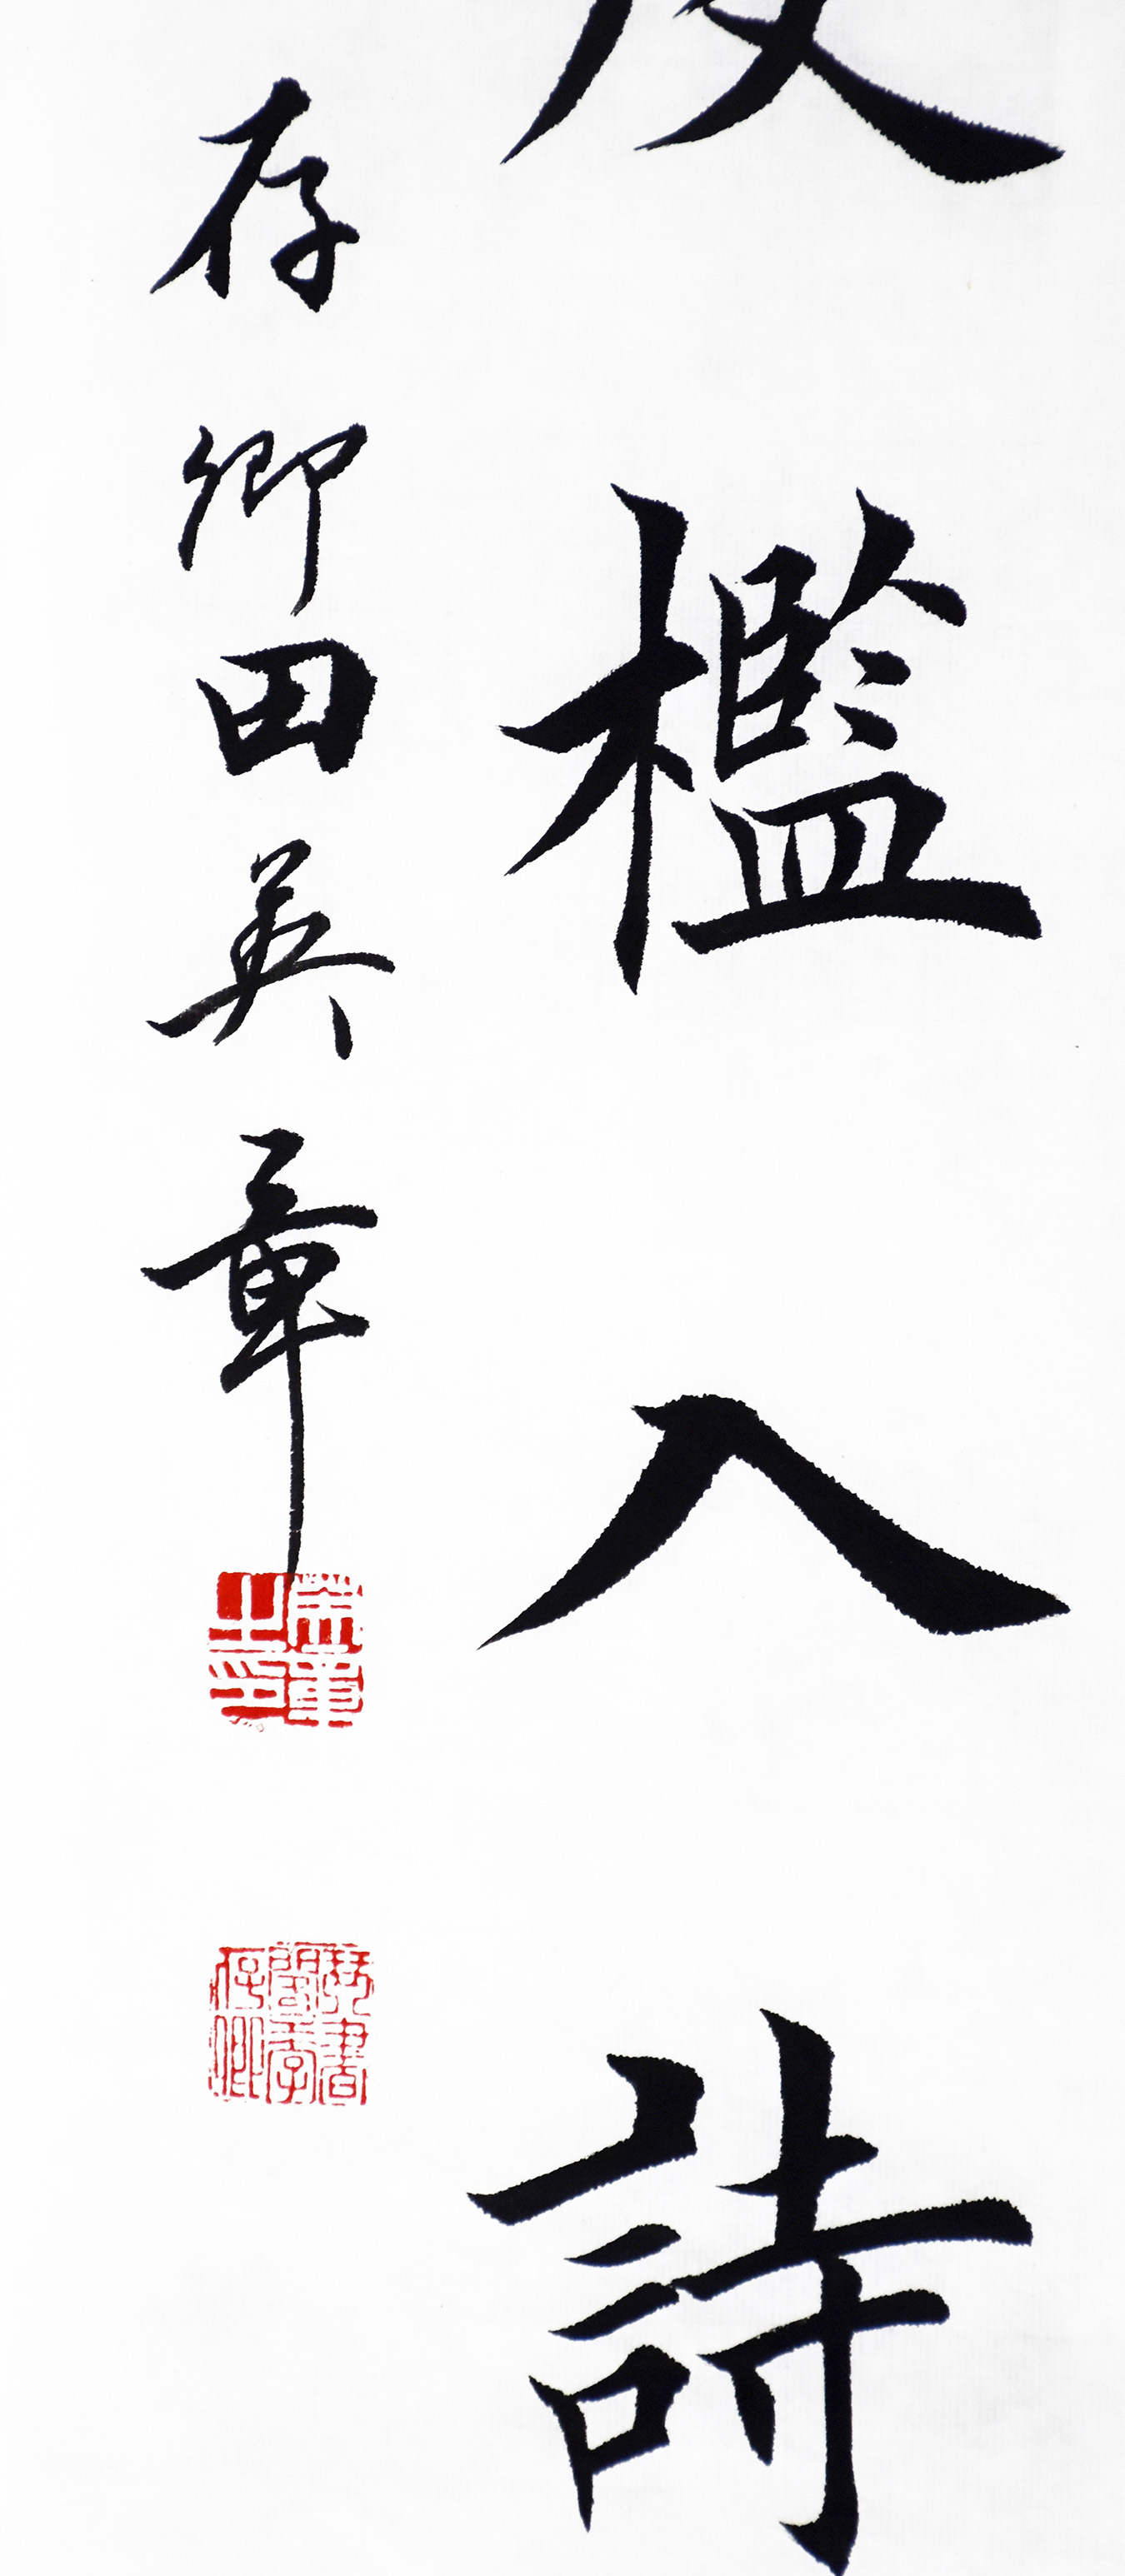 檻入詩
存卿田英章